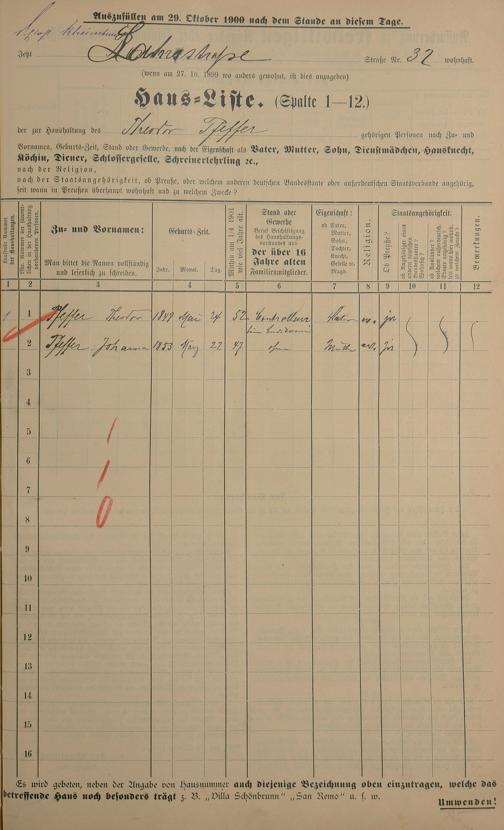 Auszufüllen am 29. Oktober 1900 nach dem Stande an diesem Tage.
Jetzt Straße Nr. 32 wohnhaft.
(wenn am 27. 10. 1899 wo anders gewohnt, ist dies anzugeben)
Haus-Liste. (Spalte 1—12.)
der zur Haushaltung des Theodor Pfeffer gehörigen Personen nach Zu- und
Vornamen, Geburts-Zeit, Stand oder Gewerbe, nach der Eigenschaft als Vater, Mutter, Sohn, Dienstmädchen, Hausknecht,
Köchin, Diener, Schlossergeselle, Schreinerlehrling ꝛc.,
nach der Religion,
nach der Staatsangehörigkeit, ob Preuße, oder welchem anderen deutschen Bundesstaate oder außerdeutschen Staatsverbande angehörig,
seit wann in Preußen überhaupt wohnhaft und zu welchem Zwecke?
Zu- und Vornamen:
Man bittet die Namen vollständig
und leserlich zu schreiben.
Geburts-Zeit.
Jahr. Monat. Tag.
Mithin am 1/4 1901
wie viel Jahre alt.
Stand oder
Gewerbe
der über 16
Jahre alten
Familienmitglieder.
Eigenschaft:
ob Vater,
Mutter,
Sohn,
Tochter,
Knecht,
Geselle o.
Magd.
Religion.
Ob Preuße?
Staatsangehörigkeit.
Bemerkungen.
1 2 3 4 5 6 7 8 9 10 11 12
1 1 Pfeffer Theodor 1849 Mai 24 52 Controlleur Vater ev. ja
2 Pfeffer Johanna 1853 22 47 Mutter ev. ja
3
4
5
6
7
8
9
10
11
12
13
14
15
16
1
1
0
Es wird gebeten, neben der Angabe von Hausnummer auch diejenige Bezeichnung oben einzutragen, welche das
betreffende Haus noch besonders trägt z. B. „Villa Schönbrunn" „San Remo" u. s. w.
Umwenden!